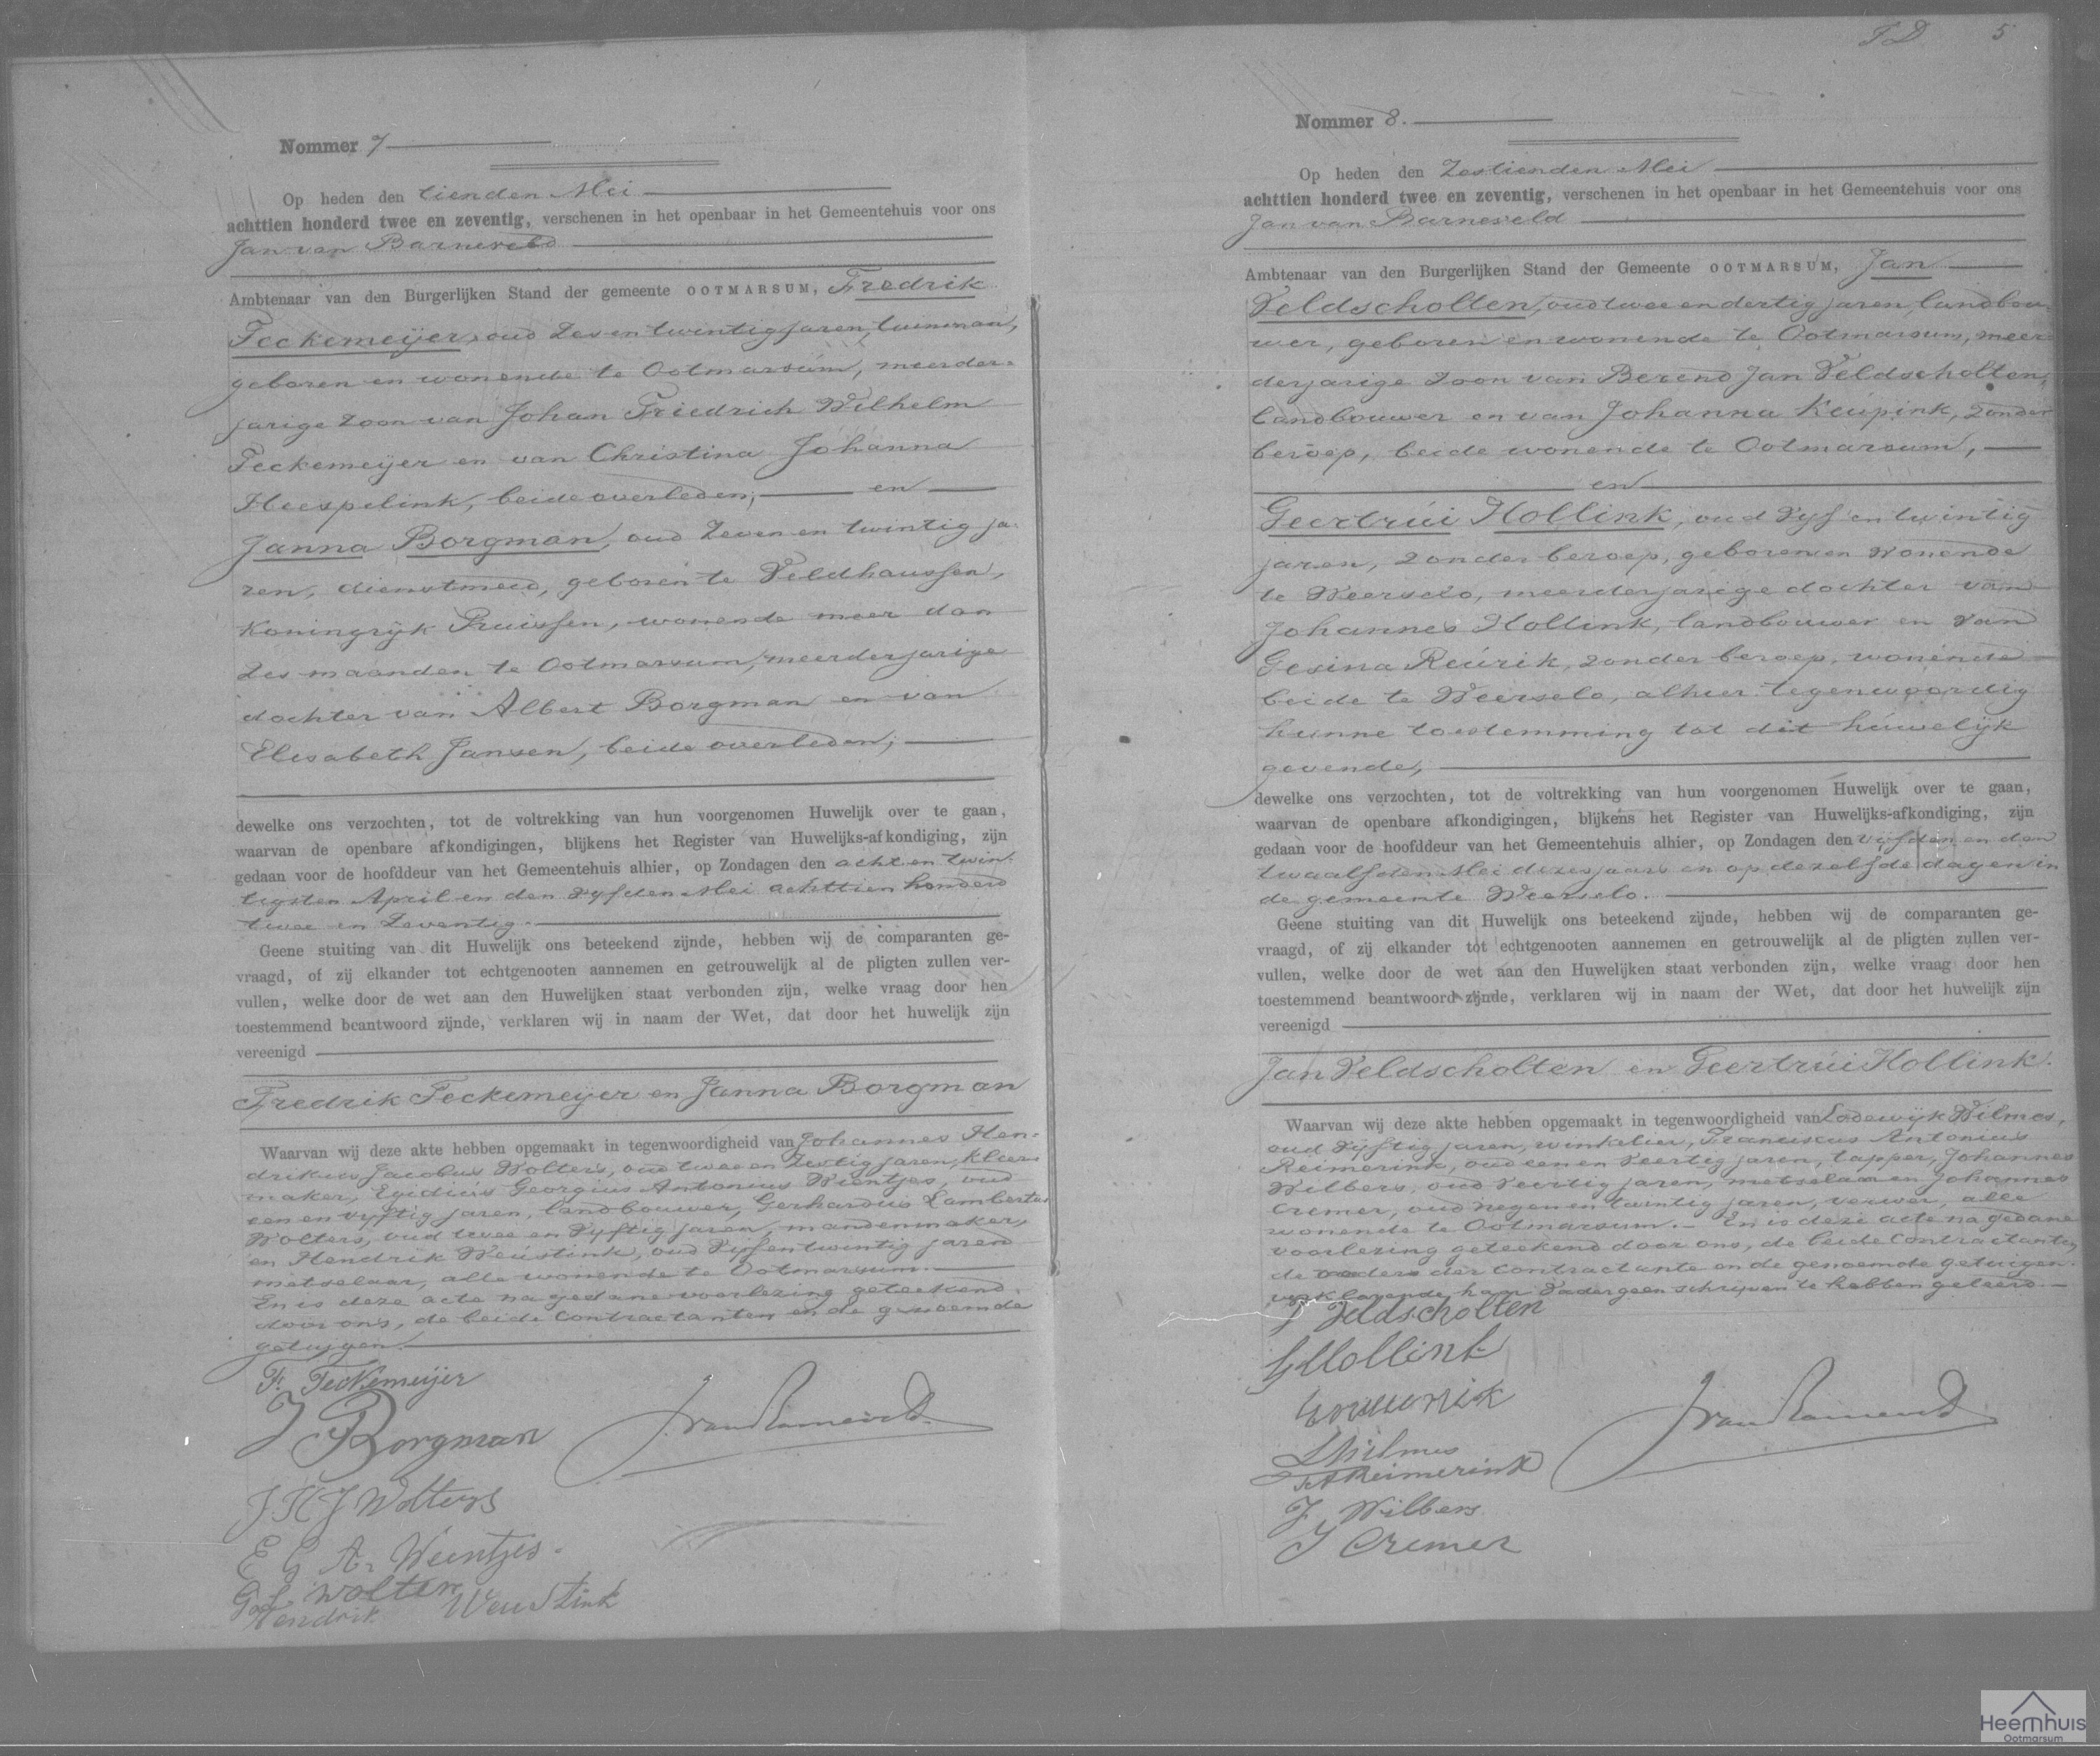 Nommer 7
Op heden den tienden Mei
achttien honderd twee en zeventig, verschenen in het openbaar in het Gemeentehuis voor ons
Jan van Barneveld
Ambtenaar van den Burgerlijken Stand der gemeente OOTMARSUM, Fredrik
Feckemeijer, oud Zes en twintig jaren, tuinman,
geboren en wonende te Ootmarsum, meerder=
jarige zoon van Johan Friedrich Wilhelm
Feckemeijer en van Christina Johanna
Heespelink, beide overleden; en
Janna Borgman, oud Zeven en twintig ja=
ren, dienstmeid, geboren te Veldhaussen,
Koningrijk Pruissen, wonende meer dan
Zes maanden te Ootmarsum, meerderjarige
dochter van Albert Borgman en van
Elisabeth Jansen, beide overleden;
dewelke ons verzochten, tot de voltrekking van hun voorgenomen Huwelijk over te gaan,
waarvan de openbare afkondigingen, blijkens het Register van Huwelijks-afkondiging, zijn
gedaan voor de hoofddeur van het Gemeentehuis alhier, op Zondagen den acht en twin-
tigsten April en den vyfden Mei achttien honderd
twee en Zeventig.
Geene stuiting van dit Huwelijk ons beteekend zijnde, hebben wij de comparanten ge-
vraagd, of zij elkander tot echtgenooten aannemen en getrouwelijk al de pligten zullen ver-
vullen, welke door de wet aan den Huwelijken staat verbonden zijn, welke vraag door hen
toestemmend beantwoord zijnde, verklaren wij in naam der Wet, dat door het huwelijk zijn
vereenigd
Fredrik Feckemeyer en Janna Borgman
Waarvan wij deze akte hebben opgemaakt in tegenwoordigheid van Johannes Hen=
drikus Jacobus Wolters, oud twee en Zestig jaren, kleer=
maker, Egidius Georgius Antonius Wientjes, oud
een en vyftig jaren, landbouwer, Gerhardus Lambertus
Wolters, oud twee en Vyftig jaren, mandenmaker,
en Hendrik Weustink, oud Vijf en twintig jaren
metselaar, alle wonende te Ootmarsum.
En is deze acte na gedane voorlezing geteekend
door ons, de beide Contractanten en de genoemde
getuigen.
Fr. Feckemeijer
J Borgman
J van Barneveld
J H J Wolters
E G A. Wientjes.
G L Wolters
Hendrik Weustink
F D 5
Nommer 8.
Op heden den Zestienden Mei
achttien honderd twee en zeventig, verschenen in het openbaar in het Gemeentehuis voor ons
Jan van Barneveld
Ambtenaar van den Burgerlijken Stand der Gemeente OOTMARSUM, Jan
Veldscholten, oud twee en dertig jaren, landbou=
wer, geboren en wonende te Ootmarsum, meer=
derjarige zoon van Berend Jan Veldscholten,
landbouwer en van Johanna Keúpink, zonder
beroep, beide wonende te Ootmarsum,
en
Geertrúi Hollink, oud Vyf en twintig
jaren, zonder beroep, geboren en wonende
te Weerselo, meerderjarige dochter van
Johannes Hollink, landbouwer en van
Gesina Reúrik, zonder beroep, wonende
beide te Weerselo, alhier tegenwoordig
hunne toestemming tot dit húwelijk
gevende;
dewelke ons verzochten, tot de voltrekking van hun voorgenomen Huwelijk over te gaan,
waarvan de openbare afkondigingen, blijkens het Register van Huwelijks-afkondiging, zijn
gedaan voor de hoofddeur van het Gemeentehuis alhier, op Zondagen den vijfden en den
twaalfden Mei dezes jaars en op dezelfde dagen in
de gemeente Weerselo.
Geene stuiting van dit Huwelijk ons beteekend zijnde, hebben wij de comparanten ge-
vraagd, of zij elkander tot echtgenooten aannemen en getrouwelijk al de pligten zullen ver-
vullen, welke door de wet aan den Huwelijken staat verbonden zijn, welke vraag door hen
toestemmend beantwoord zijnde, verklaren wij in naam der Wet, dat door het huwelijk zijn
vereenigd
Jan Veldscholten en Geertrúi Hollink.
Waarvan wij deze akte hebben opgemaakt in tegenwoordigheid van Lodewijk Wilmes,
oud Vyftig jaren, winkelier, Franciscus Antonius
Reimerink, oud een en Veertig jaren, tapper, Johannes
Wilbers, oud Veertig jaren, metselaar en Johannes
Cremer, oud negen en twintig jaren, verwer, alle
wonende te Ootmarsum. En is deze acte na gedane
voorlezing geteekend door ons, de beide Contractanten,
de moeder der Contractante en de genoemde getuigen,
verklarende haar Vader geen schrijven te hebben geleerd.
J Veldscholten
G Hollink
J van Barneveld
L Wilmes
F A Reimerink
J. Wilbers
J Cremer
Heemhuis
Ootmarsum